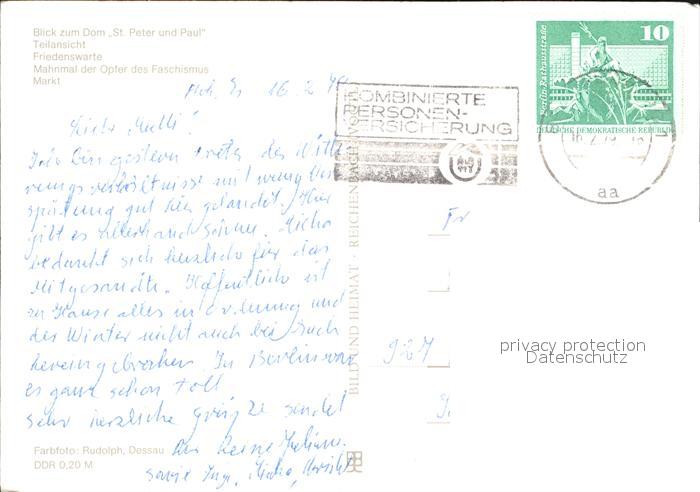 Blick zum Dom „St. Peter und Paul"
Teilansicht
Friedenswarte
Mahnmal der Opfer des Faschismus
Markt
16. 2. 79
Liebe Mutti!
Ich bin gestern trotz der Witte-
rungsverhältnisse mit wenig Ver-
spätung gut hier gelandet. Hier
gibt es allerhand Schnee. Micha
bedankt sich herzlich für das
Mitgesandte. Hoffentlich ist
zu Hause alles in Ordnung und
der Winter nicht auch bei Euch
hereingebrochen. In Berlin war
es ganz schön toll
Sehr herzliche Grüße sendet
Deine
sowie Inge, Micha,
Farbfoto: Rudolph, Dessau
DDR 0,20 M
BILD UND HEIMAT · REICHENBACH
KOMBINIERTE
PERSONEN-
VERSICHERUNG
10
Berlin-Rathausstraße
DEUTSCHE DEMOKRATISCHE REPUBLIK
aa
Fr
927
privacy protection
Datenschutz